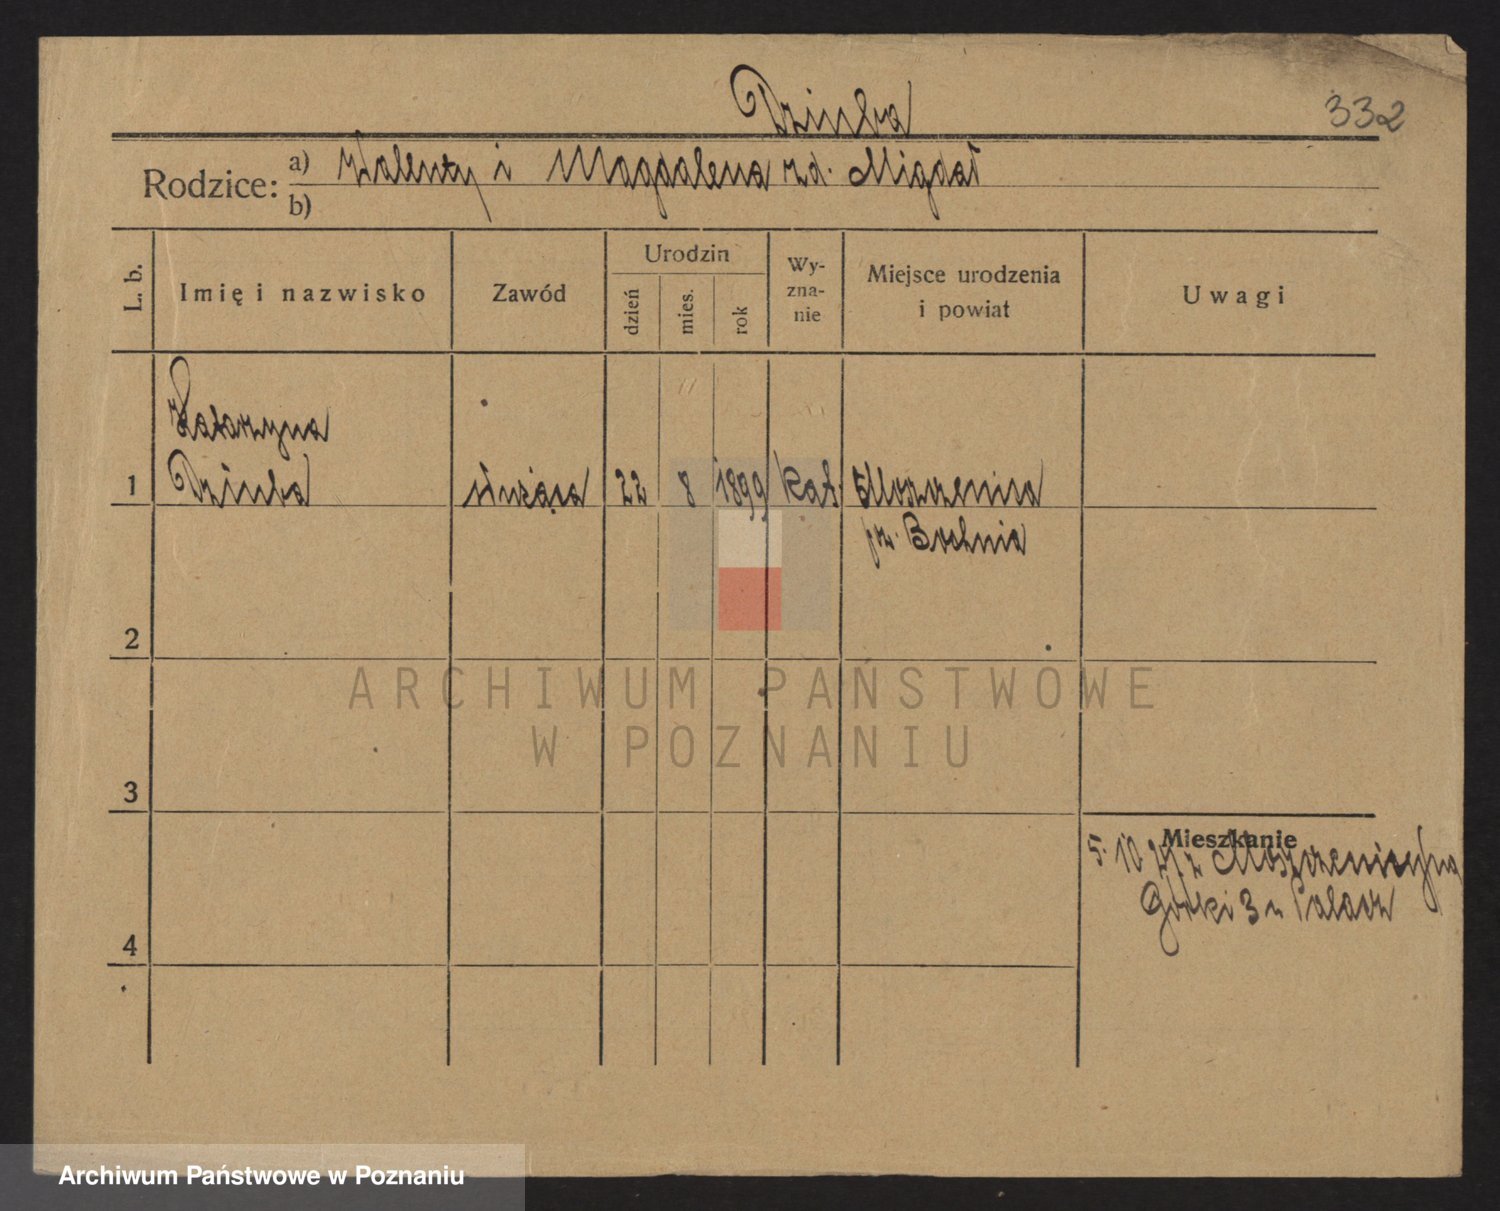 Dziuba
332
Rodzice: a) Walenty i Magdalena zd. Migdał
b)
L. b.
Imię i nazwisko
Zawód
Urodzin
dzień
mies.
rok
Wy-
zna-
nie
Miejsce urodzenia
i powiat
Uwagi
Katarzyna
1 Dziuba służąca 22 8 1899 kat. Moszczenica
pow. Bochnia
2
3
Mieszkanie
5. 10 27 z
Górki 3 u
4
ARCHIWUM PAŃSTWOWE
W POZNANIU
Archiwum Państwowe w Poznaniu